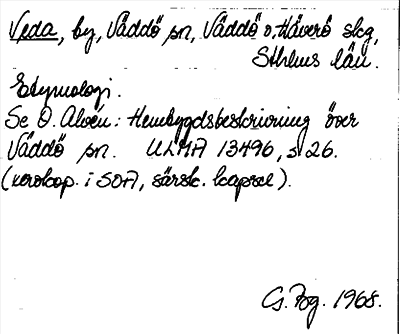 Veda, by, Väddö sn, Väddö o. Häverö skg,
Sthlms län.
Etymologi.
Se O. Alvén: Hembygdsbeskrivning över
Väddö sn. ULMA 13496, s 26.
(xerokop. i SOA, särsk. kapsel).
G. Bg. 1968.